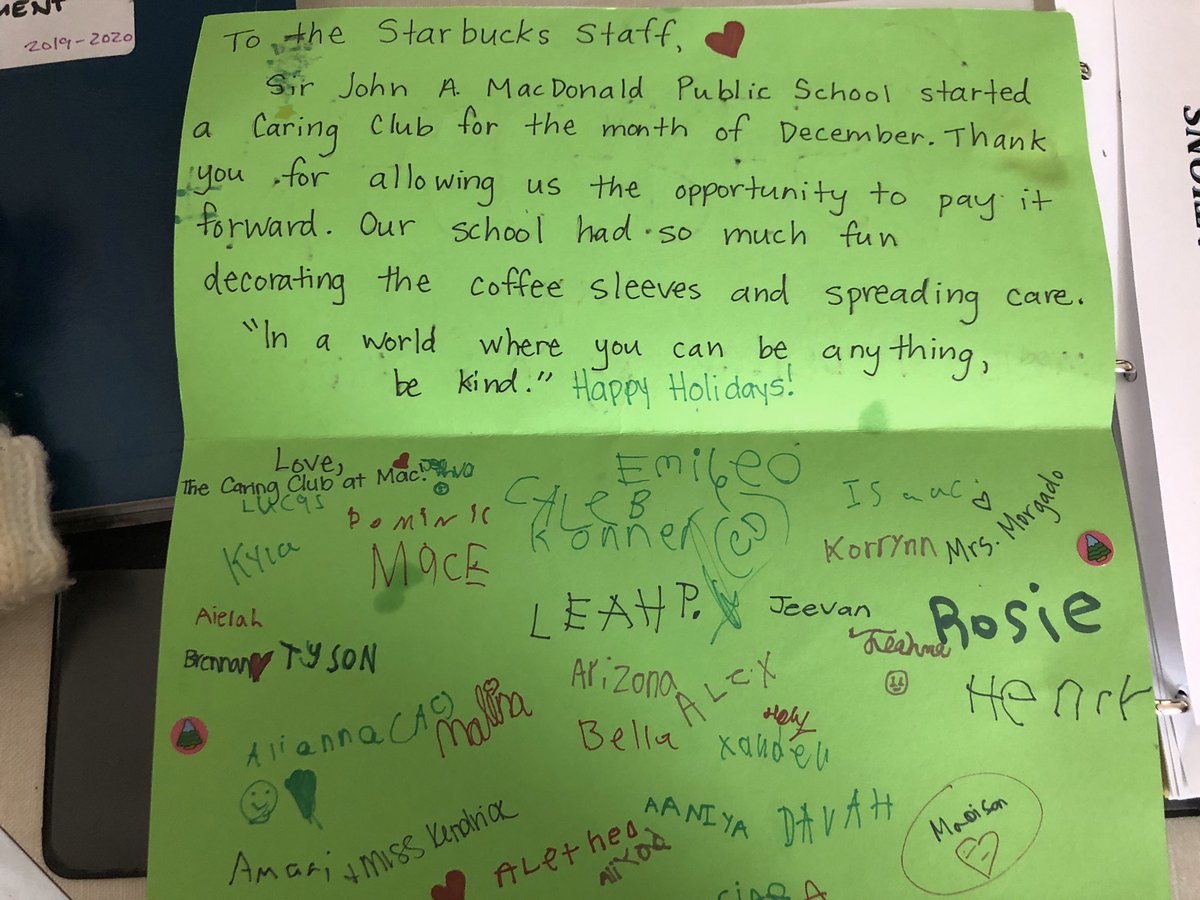 MENT
2019-2020
SNOI
To the Starbucks Staff,
Sir John A. MacDonald Public School started
a Caring Club for the month of December. Thank
you for allowing us the opportunity to pay it
forward. Our school had so much fun
decorating the coffee sleeves and spreading care.
"In a world where you can be anything,
be kind." Happy Holidays!
Love,
The Caring Club at Mac!
Lucas
Dominic
Emileo
CALEB
Konner
Isaac
Kyla
MacE
Korrynn
Mrs. Morgado
Aielah
LEAH P.
Jeevan
Rosie
Brennan
TYSON
Keahna
Arizona
ALeX
Henry
Alianna (AC)
Malina
Bella
Xander
AANIYA
DAVAH
Madison
Amari + Miss Kendrick
ALethea